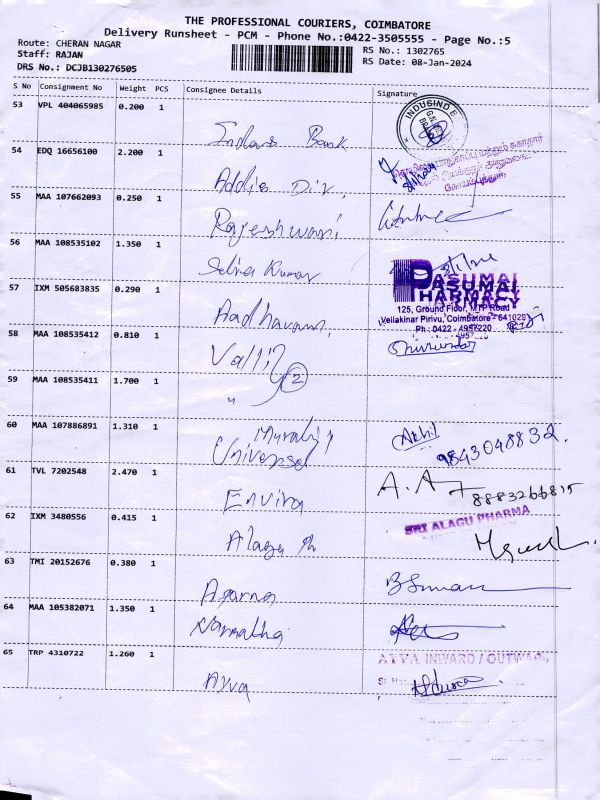 THE PROFESSIONAL COURIERS, COIMBATORE
Delivery Runsheet - PCM - Phone No.:0422-3505555 - Page No.:5
Route: CHERAN NAGAR
Staff: RAJAN
DRS No.: DCJB130276505
RS No.: 1302765
RS Date: 08-Jan-2024
S No Consignment No Weight PCS Consignee Details Signature
53 VPL 404065985 0.200 1 Bank
INDUSIND
54 EDQ 16656100 2.200 1
55 MAA 107662093 0.250 1 Rajeshwari
56 MAA 108535102 1.350 1 Selva Kumar
57 IXM 505683835 0.290 1
PASUMAI
PHARMACY
125, Ground Floor, MTP Road
Vellakinar Pirivu, Coimbatore - 641029
Ph : 0422 - 4957220
58 MAA 108535412 0.810 1 Valli
2
59 MAA 108535411 1.700 1 "
60 MAA 107886891 1.310 1 Universal
Akhil
9843048832.
61 TVL 7202548 2.470 1 Envira
8883266815
62 IXM 3480556 0.415 1 Alagu Ph
SRI ALAGU PHARMA
63 TMI 20152676 0.380 1 Aparna
64 MAA 105382071 1.350 1 Narmatha
65 TRP 4310722 1.260 1
INWARD / OUTWARD